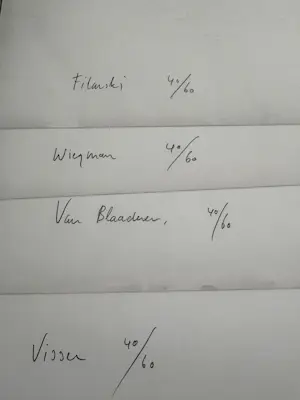 Filarski 40/60
Wiegman 40/60
Van Blaaderen, 40/60
Visser 40/60